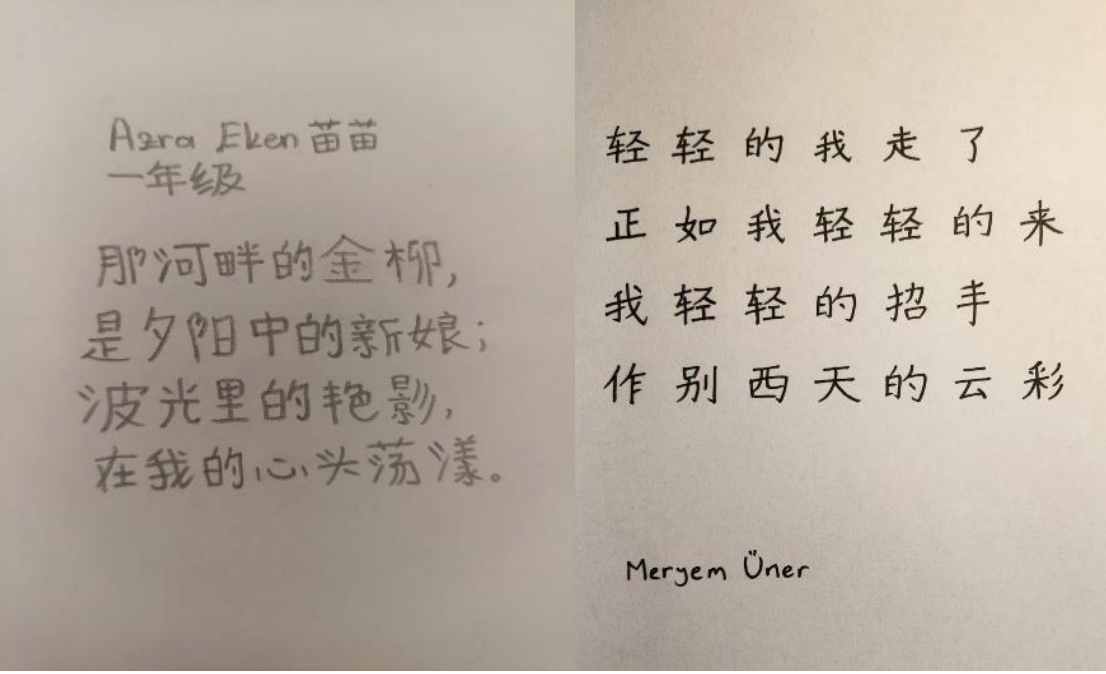 Azra Eken 苗苗
一年级
那河畔的金柳,
是夕阳中的新娘;
波光里的艳影,
在我的心头荡漾。
轻轻的我走了
正如我轻轻的来
我轻轻的招手
作别西天的云彩
Meryem Üner